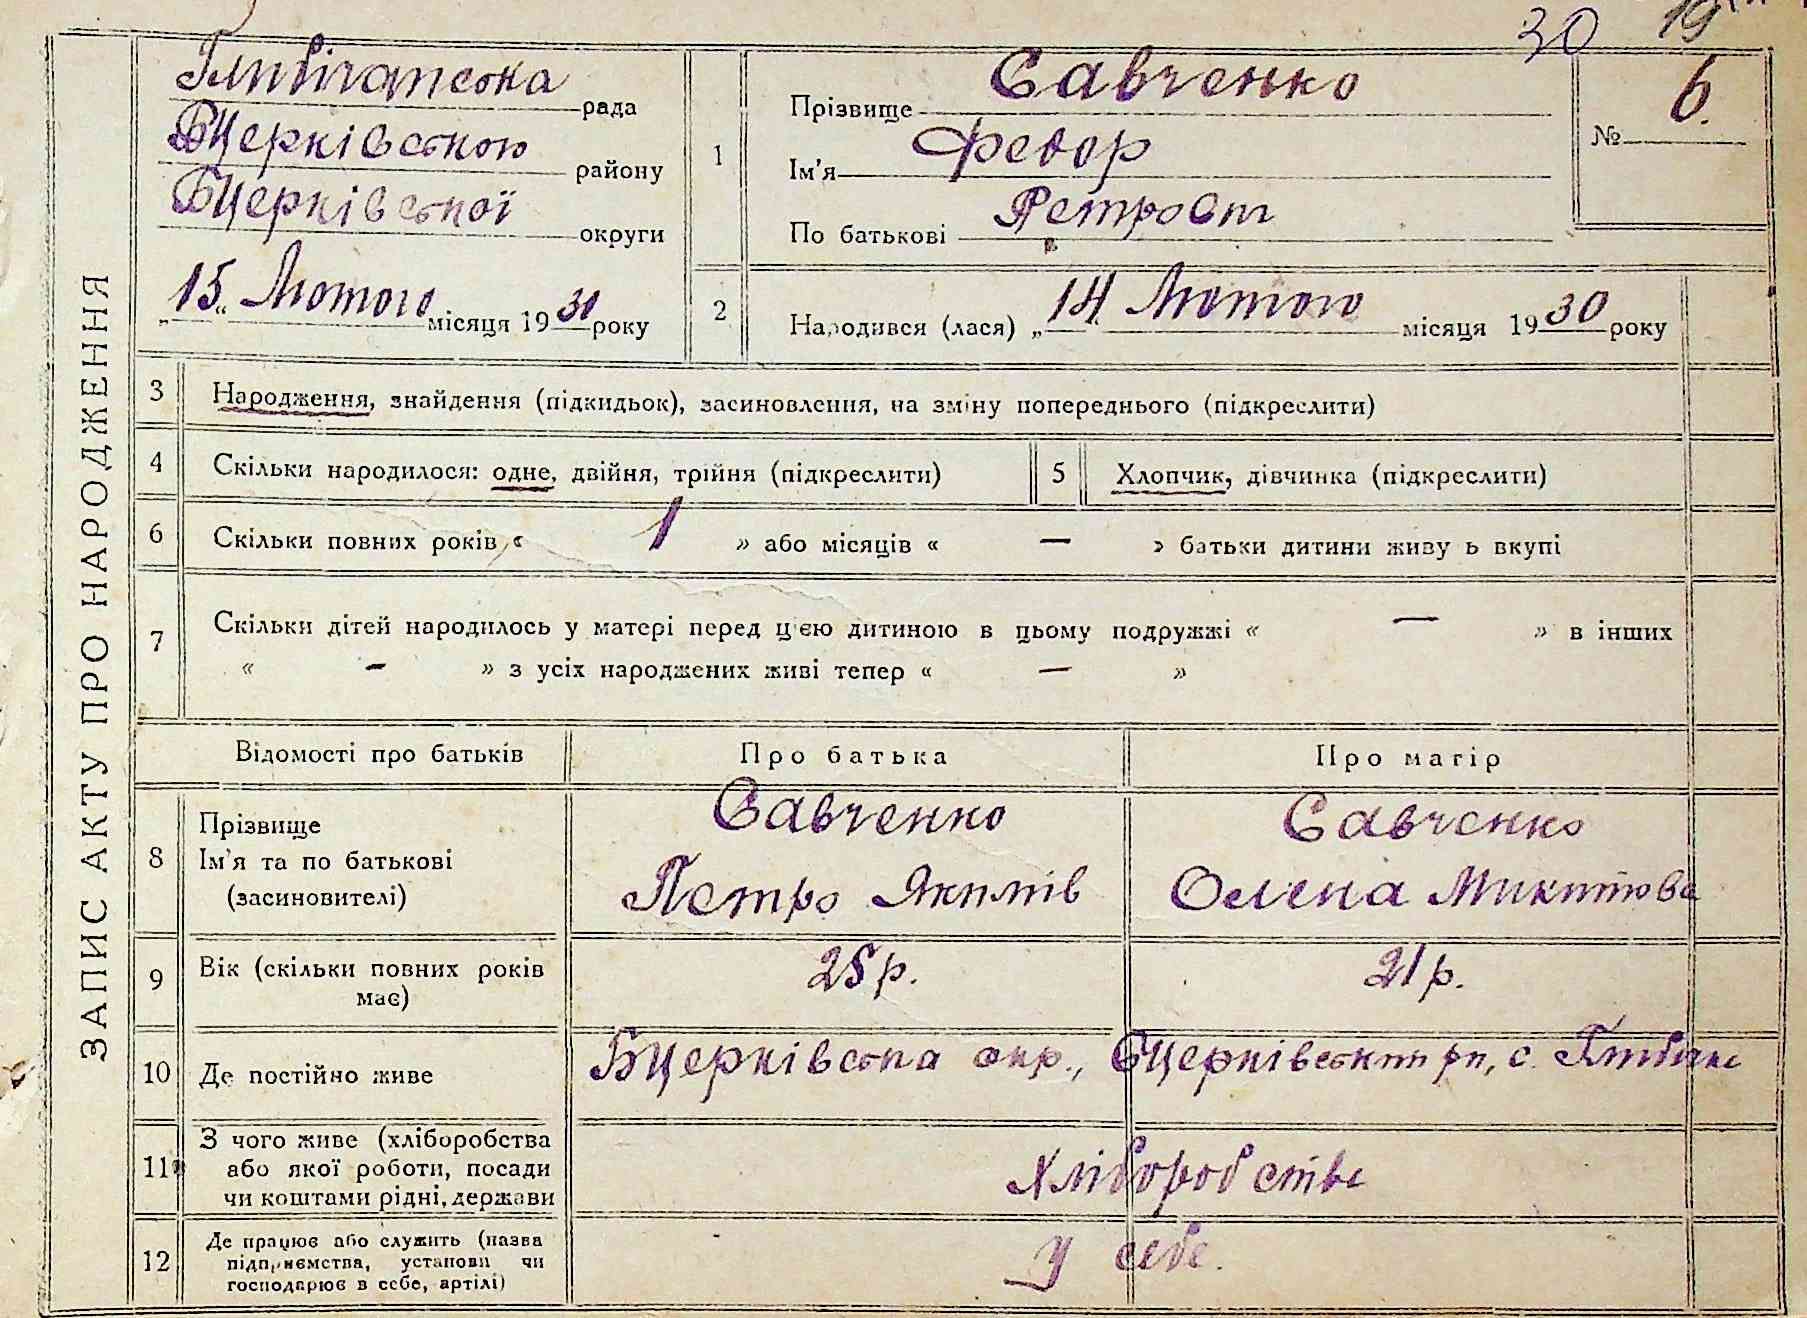 30 19
ЗАПИС АКТУ ПРО НАРОДЖЕННЯ
Глибічанська рада
БЦерківського району
БЦерківської округи
„15“ Лютого місяця 1930 року
1
Прізвище Савченко
Ім'я Федор
По батькові Петровит
№ 6.
2
Народився (лася) „14“ Лютого місяця 1930 року
3 Народження, знайдення (підкидьок), засиновлення, на зміну попереднього (підкреслити)
4 Скільки народилося: одне, двійня, трійня (підкреслити)
5 Хлопчик, дівчинка (підкреслити)
6 Скільки повних років « 1 » або місяців « — » батьки дитини живу ь вкупі
7 Скільки дітей народилось у матері перед цією дитиною в цьому подружжі « — » в інших
« — » з усіх народжених живі тепер « — »
Відомості про батьків Про батька Про матір
8 Прізвище
Ім'я та по батькові
(засиновителі)
Савченко
Петро Якимів
Савченко
Олена Микитова
9 Вік (скільки повних років
має)
25 р. 21 р.
10 Де постійно живе БЦерківська окр., БЦерківський рн, с. Глибічка
11 З чого живе (хліборобства
або якої роботи, посади
чи коштами рідні, держави
Хліборобства
12 Де працює або служить (назва
підприємства, установи чи
господарює в себе, артілі)
У себе.